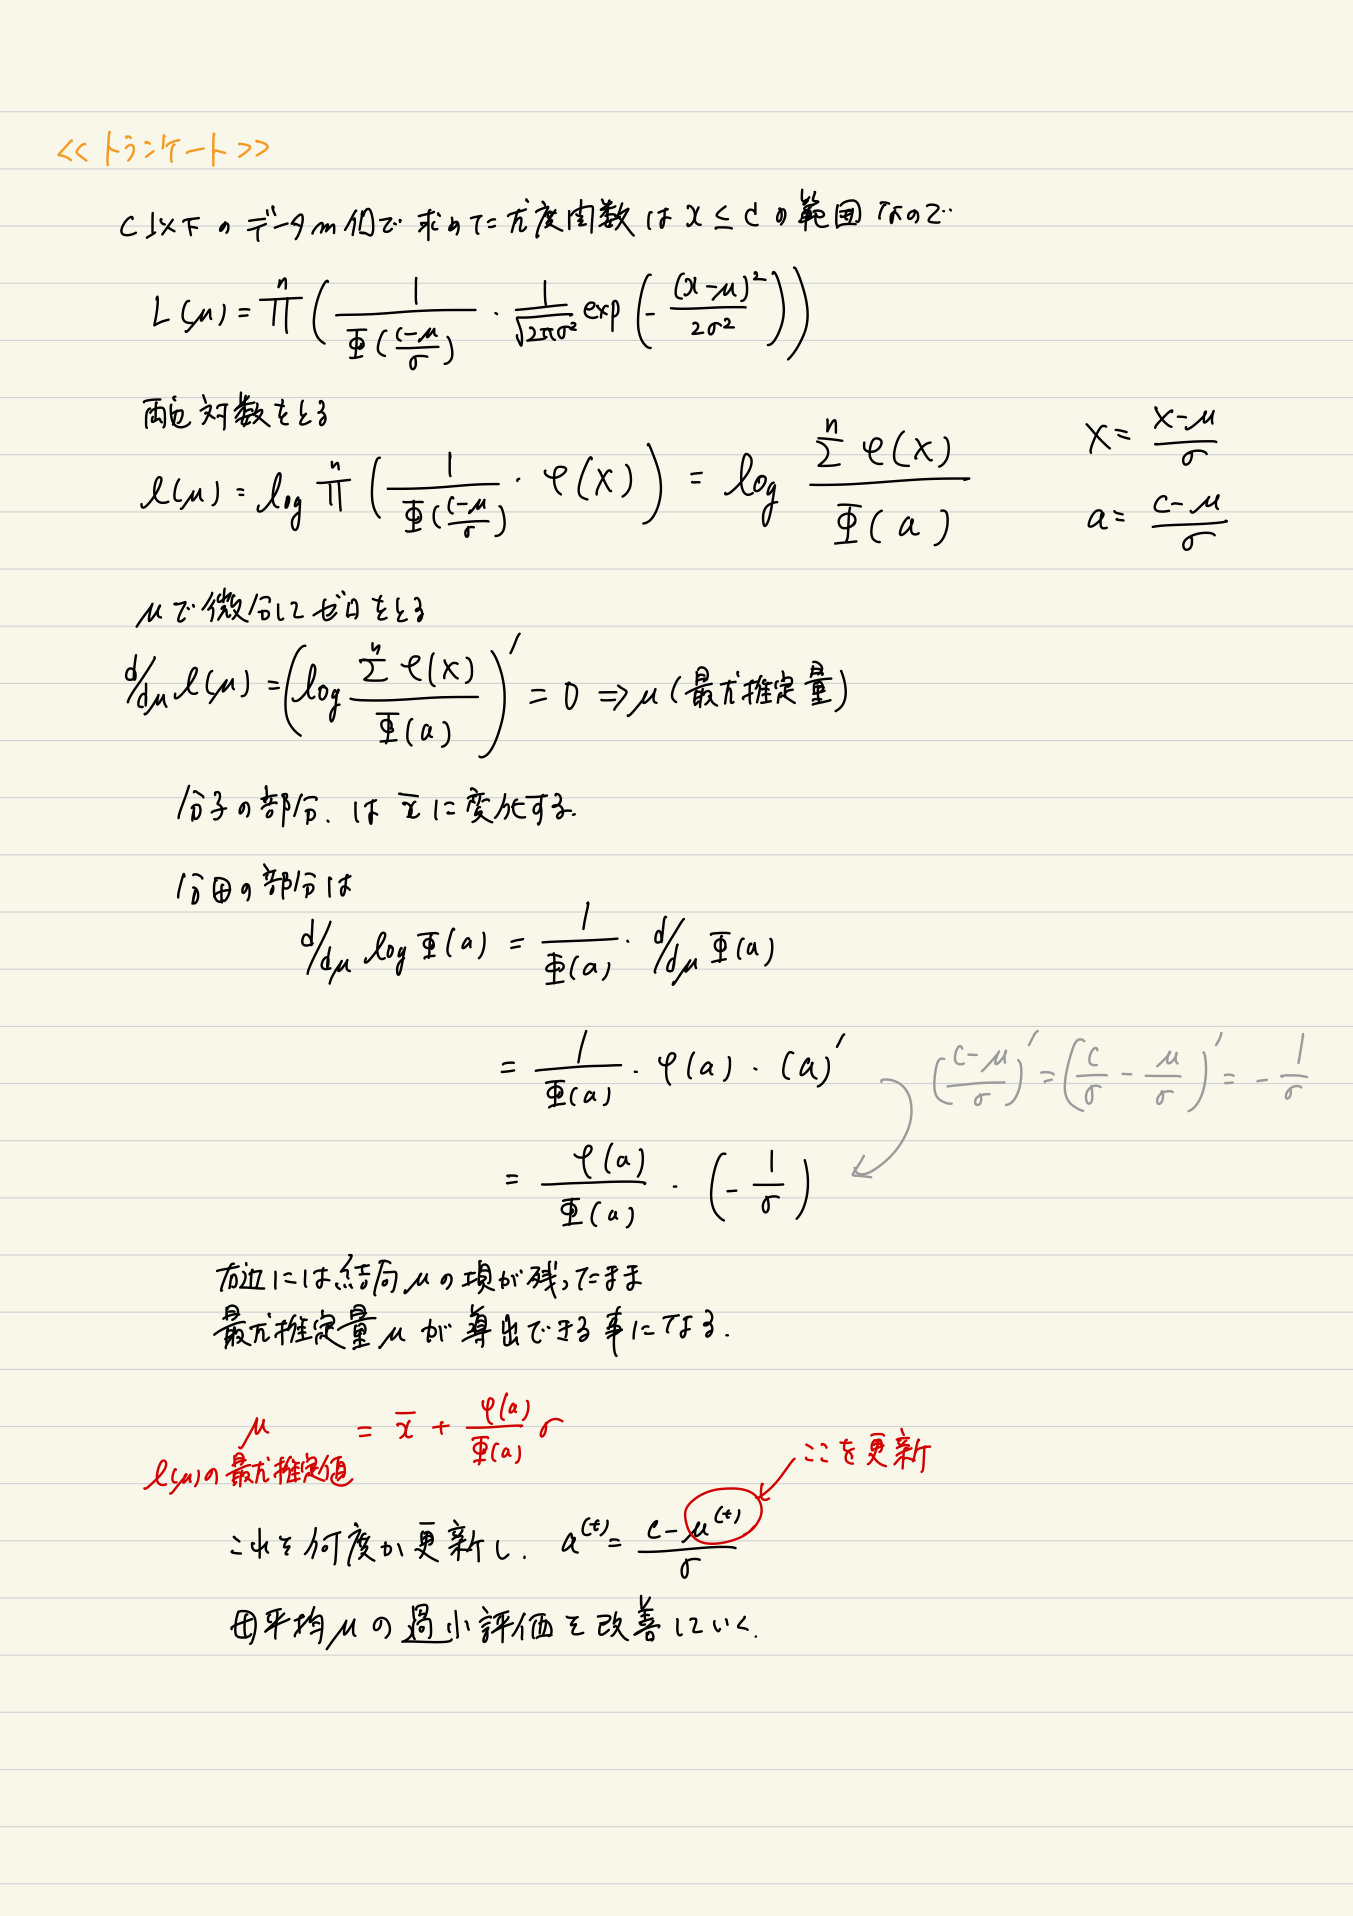 <<トランケート>>
C以下のデータm個で求めた尤度関数は x ≤ c の範囲なので
L(μ) = Π^n ( 1/Φ((c-μ)/σ) · 1/√(2πσ²) exp( - (x-μ)²/2σ² ) )
両辺対数をとる
l(μ) = log Π^n ( 1/Φ((c-μ)/σ) · φ(X) ) = log Σ^n φ(X) / Φ(a)
X = (x-μ)/σ
a = (c-μ)/σ
μで微分してゼロをとる
d/dμ l(μ) = ( log Σ^n φ(X) / Φ(a) )′ = 0 ⇒ μ (最尤推定量)
分子の部分、は x̄ に変化する.
分母の部分は
d/dμ log Φ(a) = 1/Φ(a) · d/dμ Φ(a)
= 1/Φ(a) · φ(a) · (a)′
((c-μ)/σ)′ = (c/σ - μ/σ)′ = - 1/σ
= φ(a)/Φ(a) · (- 1/σ)
右辺には結局μの項が残ったまま
最尤推定量μが導出できる事になる.
μ = x̄ + φ(a)/Φ(a) σ
l(μ)の最尤推定値
ここを更新
これを何度か更新し. a^(t) = (c-μ^(t))/σ
母平均μの過小評価を改善していく.